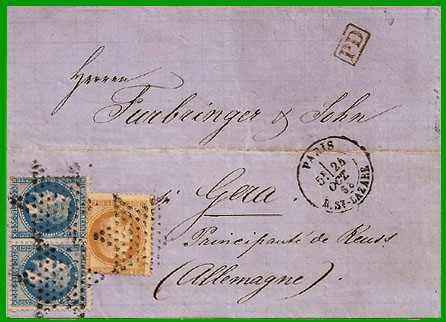 PD
Herren
Furbringer & Sohn
Gera
Principauté de Reuss
(Allemagne)
PARIS
5E 25
OCT
R. ST-LAZARE